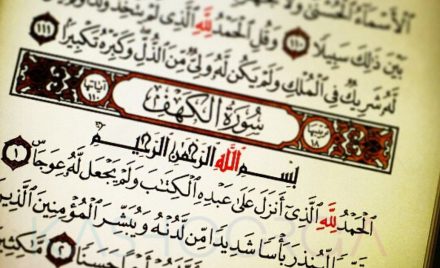 ٱلْأَسْمَآءُ ٱلْحُسْنَىٰ وَلَا تَجْهَرْ
بَيْنَ ذَٰلِكَ سَبِيلًا ١١٠ وَقُلِ ٱلْحَمْدُ لِلَّهِ ٱلَّذِى لَمْ يَتَّخِذْ وَلَدًا وَلَمْ يَكُن
لَّهُۥ شَرِيكٌ فِى ٱلْمُلْكِ وَلَمْ يَكُن لَّهُۥ وَلِىٌّ مِّنَ ٱلذُّلِّ وَكَبِّرْهُ تَكْبِيرًۢا ١١١
ترتيبها ١٨ سُورَةُ الكَهْفِ آياتها ١١٠
بِسْمِ ٱللَّهِ ٱلرَّحْمَٰنِ ٱلرَّحِيمِ
ٱلْحَمْدُ لِلَّهِ ٱلَّذِىٓ أَنزَلَ عَلَىٰ عَبْدِهِ ٱلْكِتَٰبَ وَلَمْ يَجْعَل لَّهُۥ عِوَجَاۜ ١
لِّيُنذِرَ بَأْسًا شَدِيدًا مِّن لَّدُنْهُ وَيُبَشِّرَ ٱلْمُؤْمِنِينَ ٱلَّذِينَ
أَجْرًا حَسَنًا ٢ مَّٰكِثِينَ